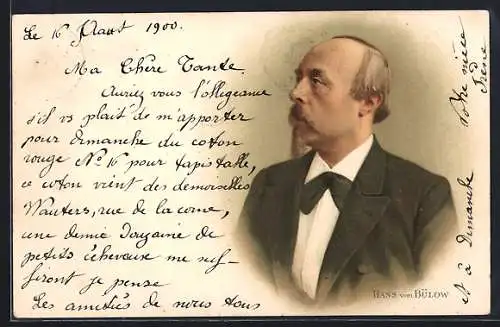 Le 16 Aout 1900.
Ma Chère Tante.
Auriez vous l'obligeance
s'il vs plait de m'apporter
pour dimanche du coton
rouge No 16 pour tapis table,
ce coton vient des demoiselles
Wauters, rue de la corne,
une demie douzaine de
petits écheveaux me suf-
firont je pense
Les amitiés de nous tous
et à Dimanche
Votre nièce
Irène
HANS VON BÜLOW